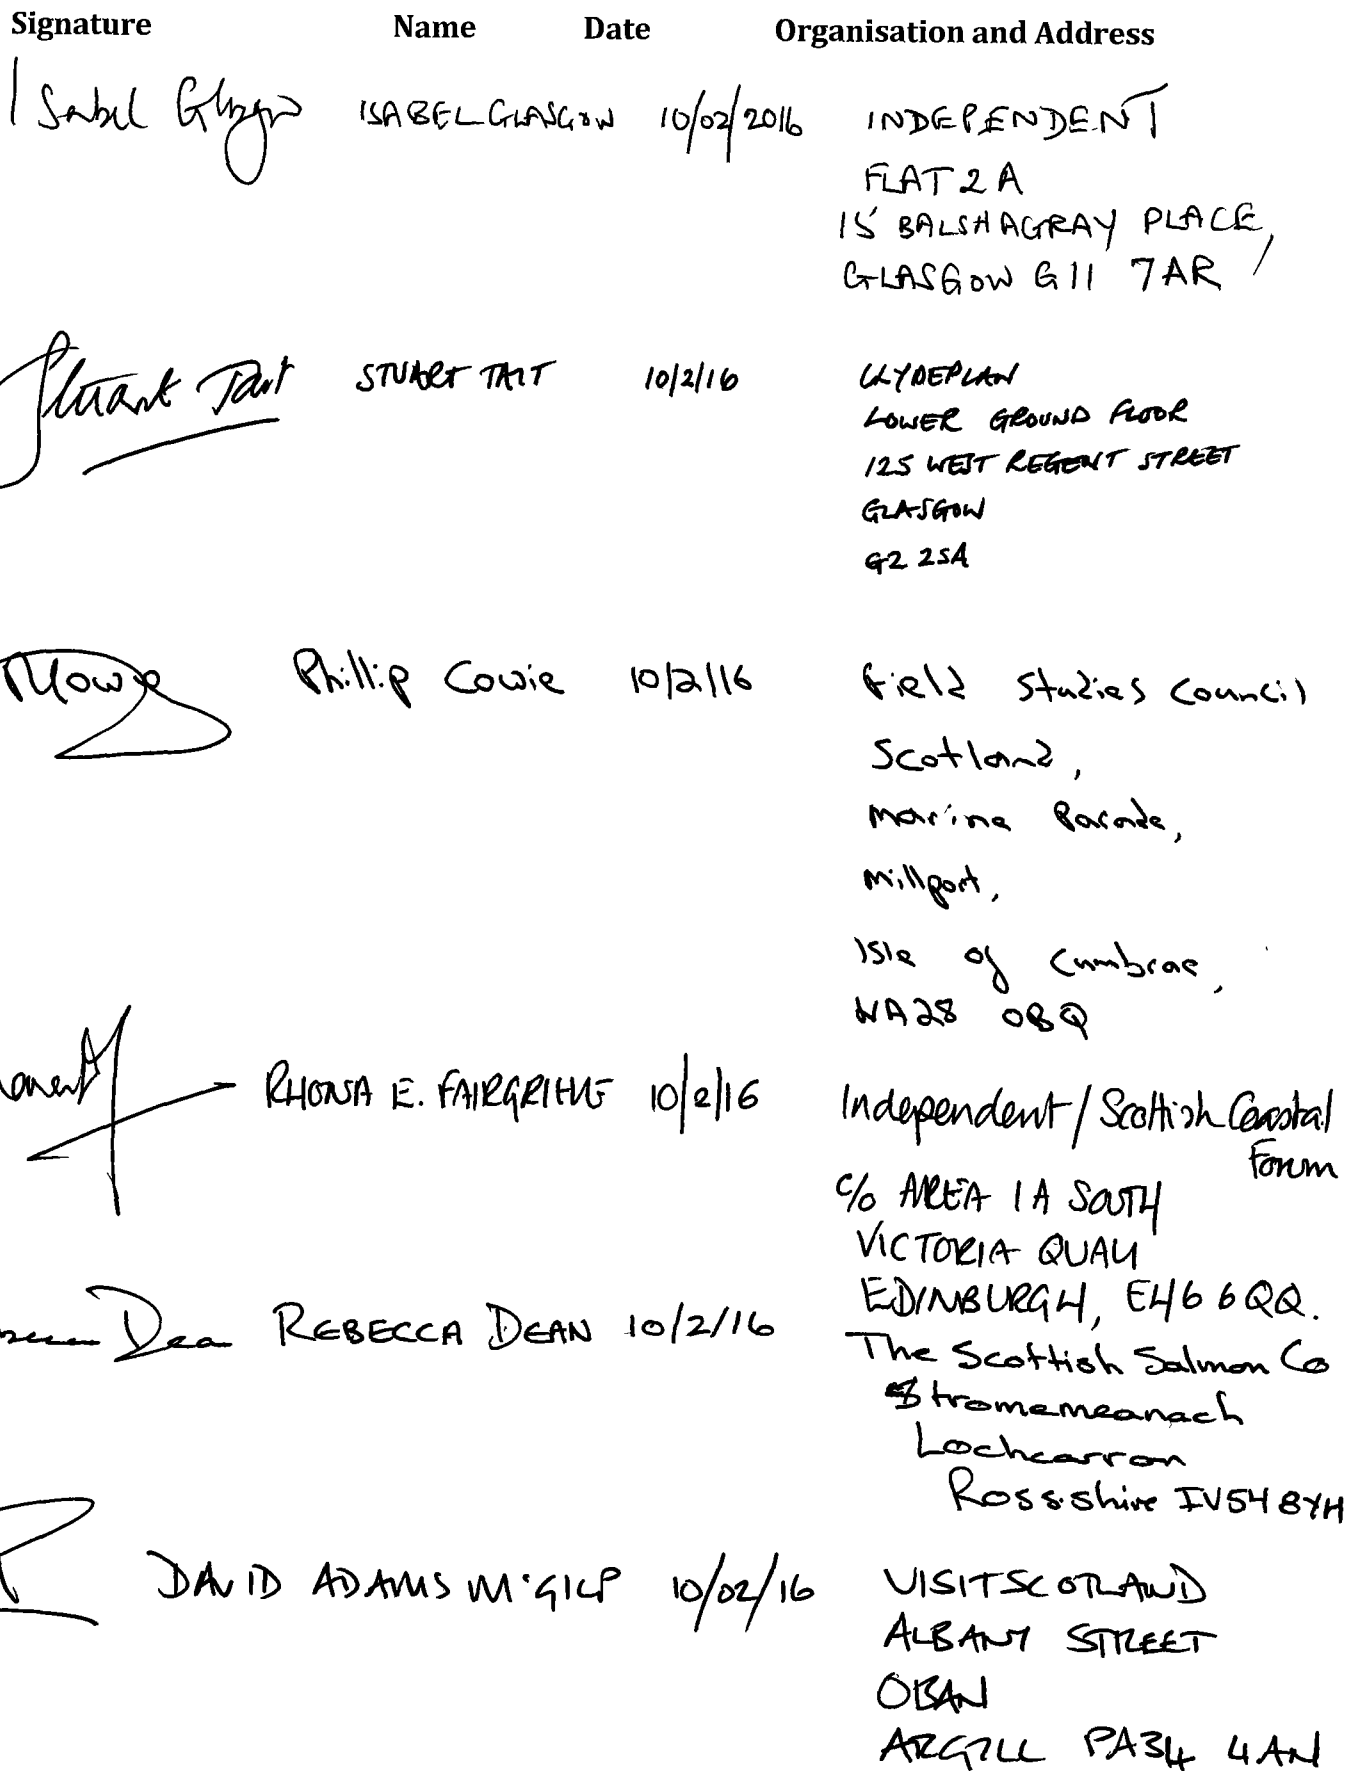 Signature Name Date Organisation and Address
Isabel Glasgow ISABEL GLASGOW 10/02/2016 INDEPENDENT
FLAT 2A
15 BALSHAGRAY PLACE,
GLASGOW G11 7AR
Stuart Tait STUART TAIT 10/2/16 CLYDEPLAN
LOWER GROUND FLOOR
125 WEST REGENT STREET
GLASGOW
G2 2SA
Phillip Cowie 10/2/16 Field Studies Council
Scotland,
Marine Parade,
Millport,
Isle of Cumbrae,
KA28 0BQ
RHONA E. FAIRGRIEVE 10/2/16 Independent/Scottish Coastal
Forum
c/o AREA 1A SOUTH
VICTORIA QUAY
EDINBURGH, EH6 6QQ.
Dean REBECCA DEAN 10/2/16 The Scottish Salmon Co
Stromemeanach
Lochcarron
Ross-shire IV54 8YH
DAVID ADAMS McGILP 10/02/16 VISITSCOTLAND
ALBANY STREET
OBAN
ARGYLL PA34 4AN